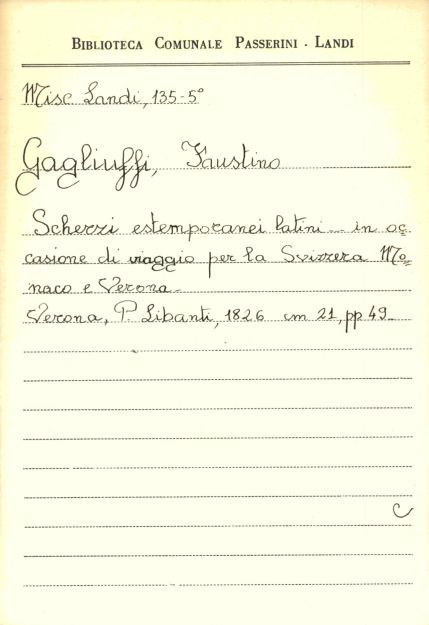 BIBLIOTECA COMUNALE PASSERINI - LANDI
Misc Landi, 135-5°
Gagliuffi, Faustino
Scherzi estemporanei latini - in oc-
casione di viaggio per la Svizzera Mo-
naco e Verona -
Verona, P. Libanti, 1826 cm 21, pp 49 -
C